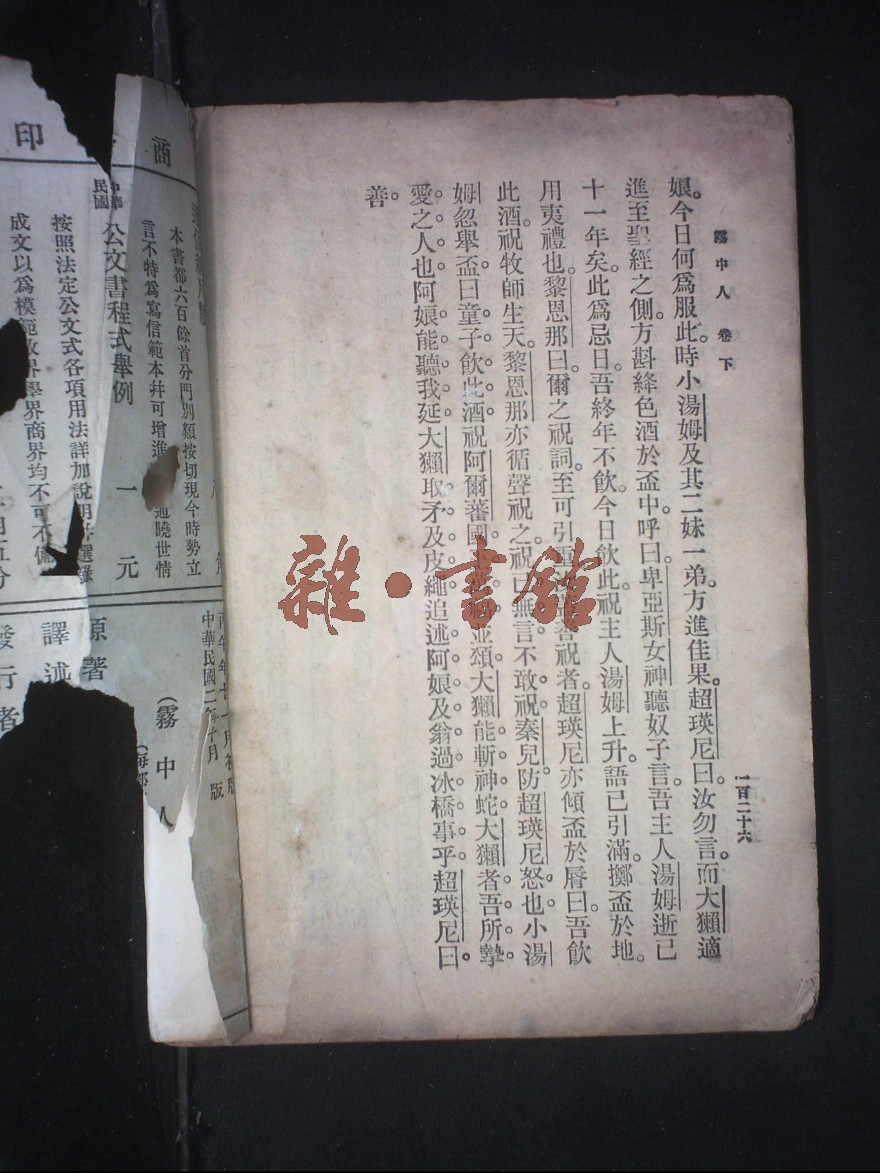 霧中人 卷下
一百二十六
娘。今日何爲服此。時小湯姆及其二妹一弟。方進佳果。超瑛尼曰。汝勿言。而大獺適
進至聖經之側。方斟絳色酒於盃中。呼曰。卑亞斯女神聽奴子言。吾主人湯姆逝已
十一年矣。此爲忌日。吾終年不飲。今日飲此。祝主人湯姆上升。語已引滿。擲盃於地。
用夷禮也。黎恩那曰。爾之祝詞。至可引重 祝者。超瑛尼亦傾盃於脣曰。吾飲
此酒。祝牧師生天。黎恩那亦循聲祝之。祝已無言。不敢祝秦兒。防超瑛尼怒也。小湯
姆忽舉盃曰。童子飲此酒。祝阿爾蕃國 並頌大獺能斬神蛇。大獺者。吾所摯
愛之人也。阿娘能聽我延大獺取矛及皮繩。追述阿娘及翁過冰橋事乎。超瑛尼曰。
善。
商 印
本書都六百餘首分門別類按切現今時勢立
言不特爲寫信範本幷可增進 通曉世情
中華民國 公文書程式舉例 一元
按照法定公文式各項用法詳加說明幷選錄
成文以爲模範政界學界商界均不可不備
角五分
丙午年十一月初版
中華民國二年 月 版
(霧中人
(每部
原著
譯述
發行者
雜·書館